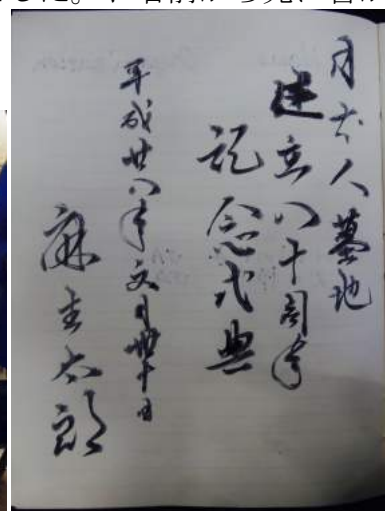 日本人墓地
建立八十周年
記念式典
平成廿八年文月
麻生太郎